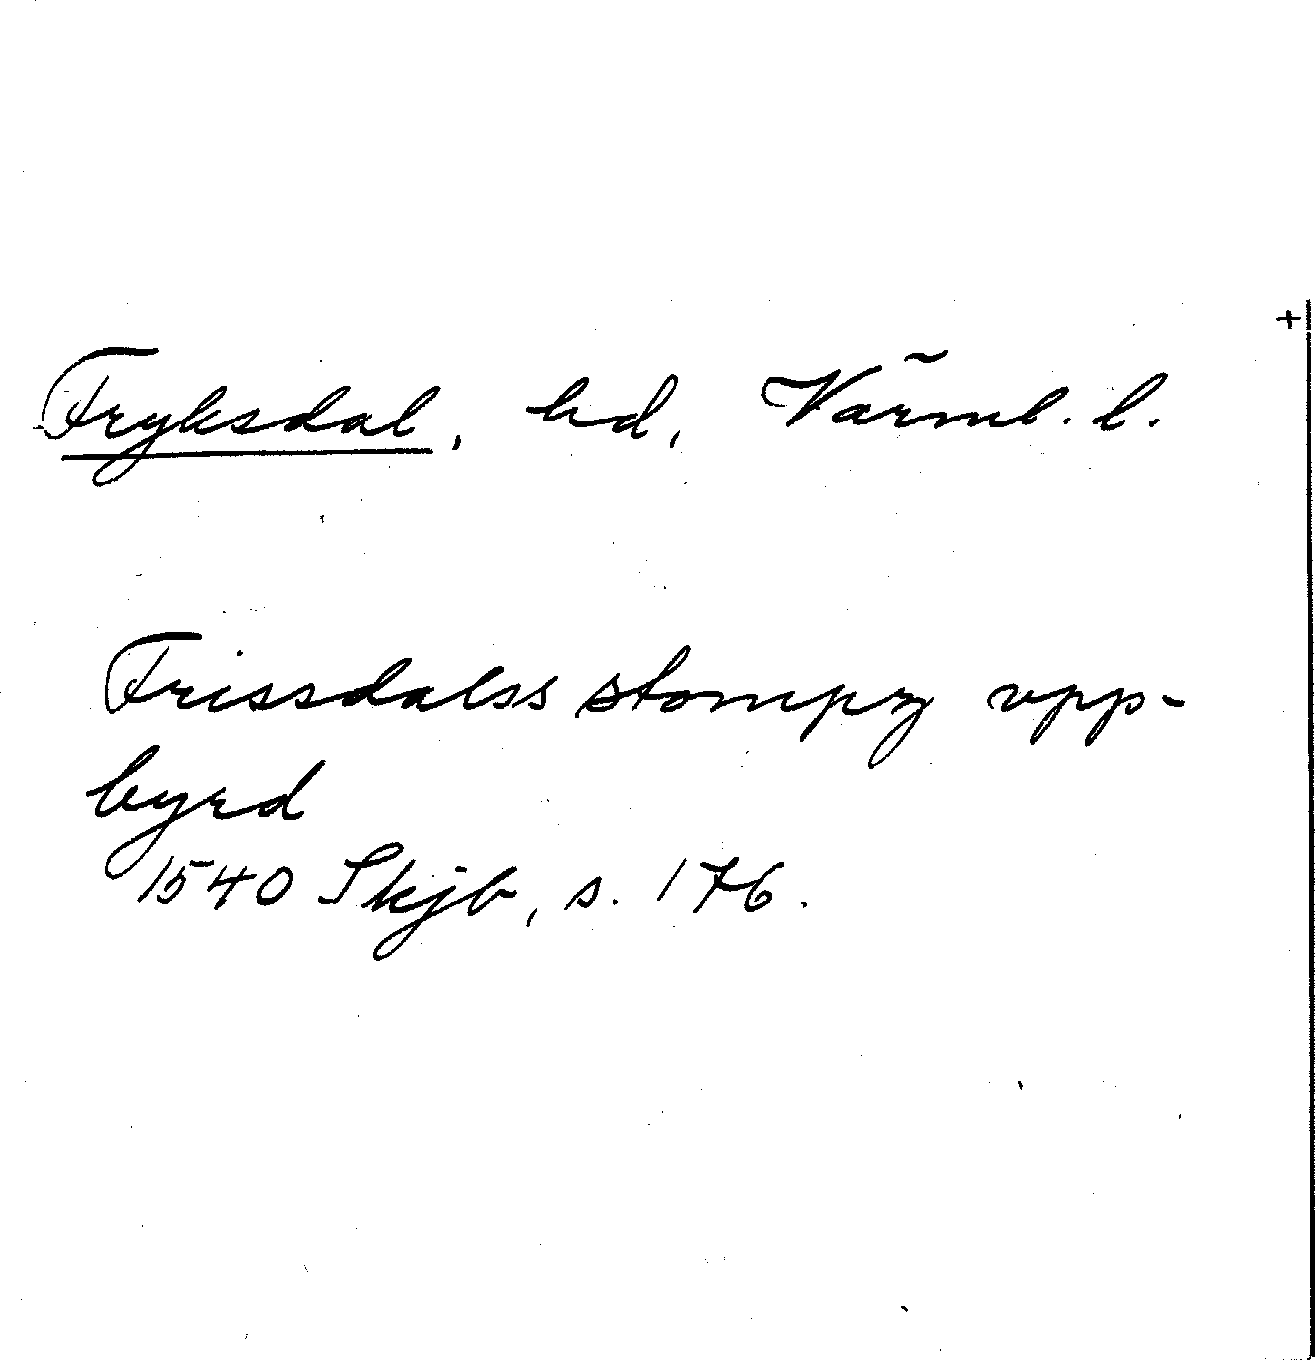 +
Fryksdal, hd, Värml. l.
Frissdalss stompz vpp-
byrd
1540 Skjb, s. 176.